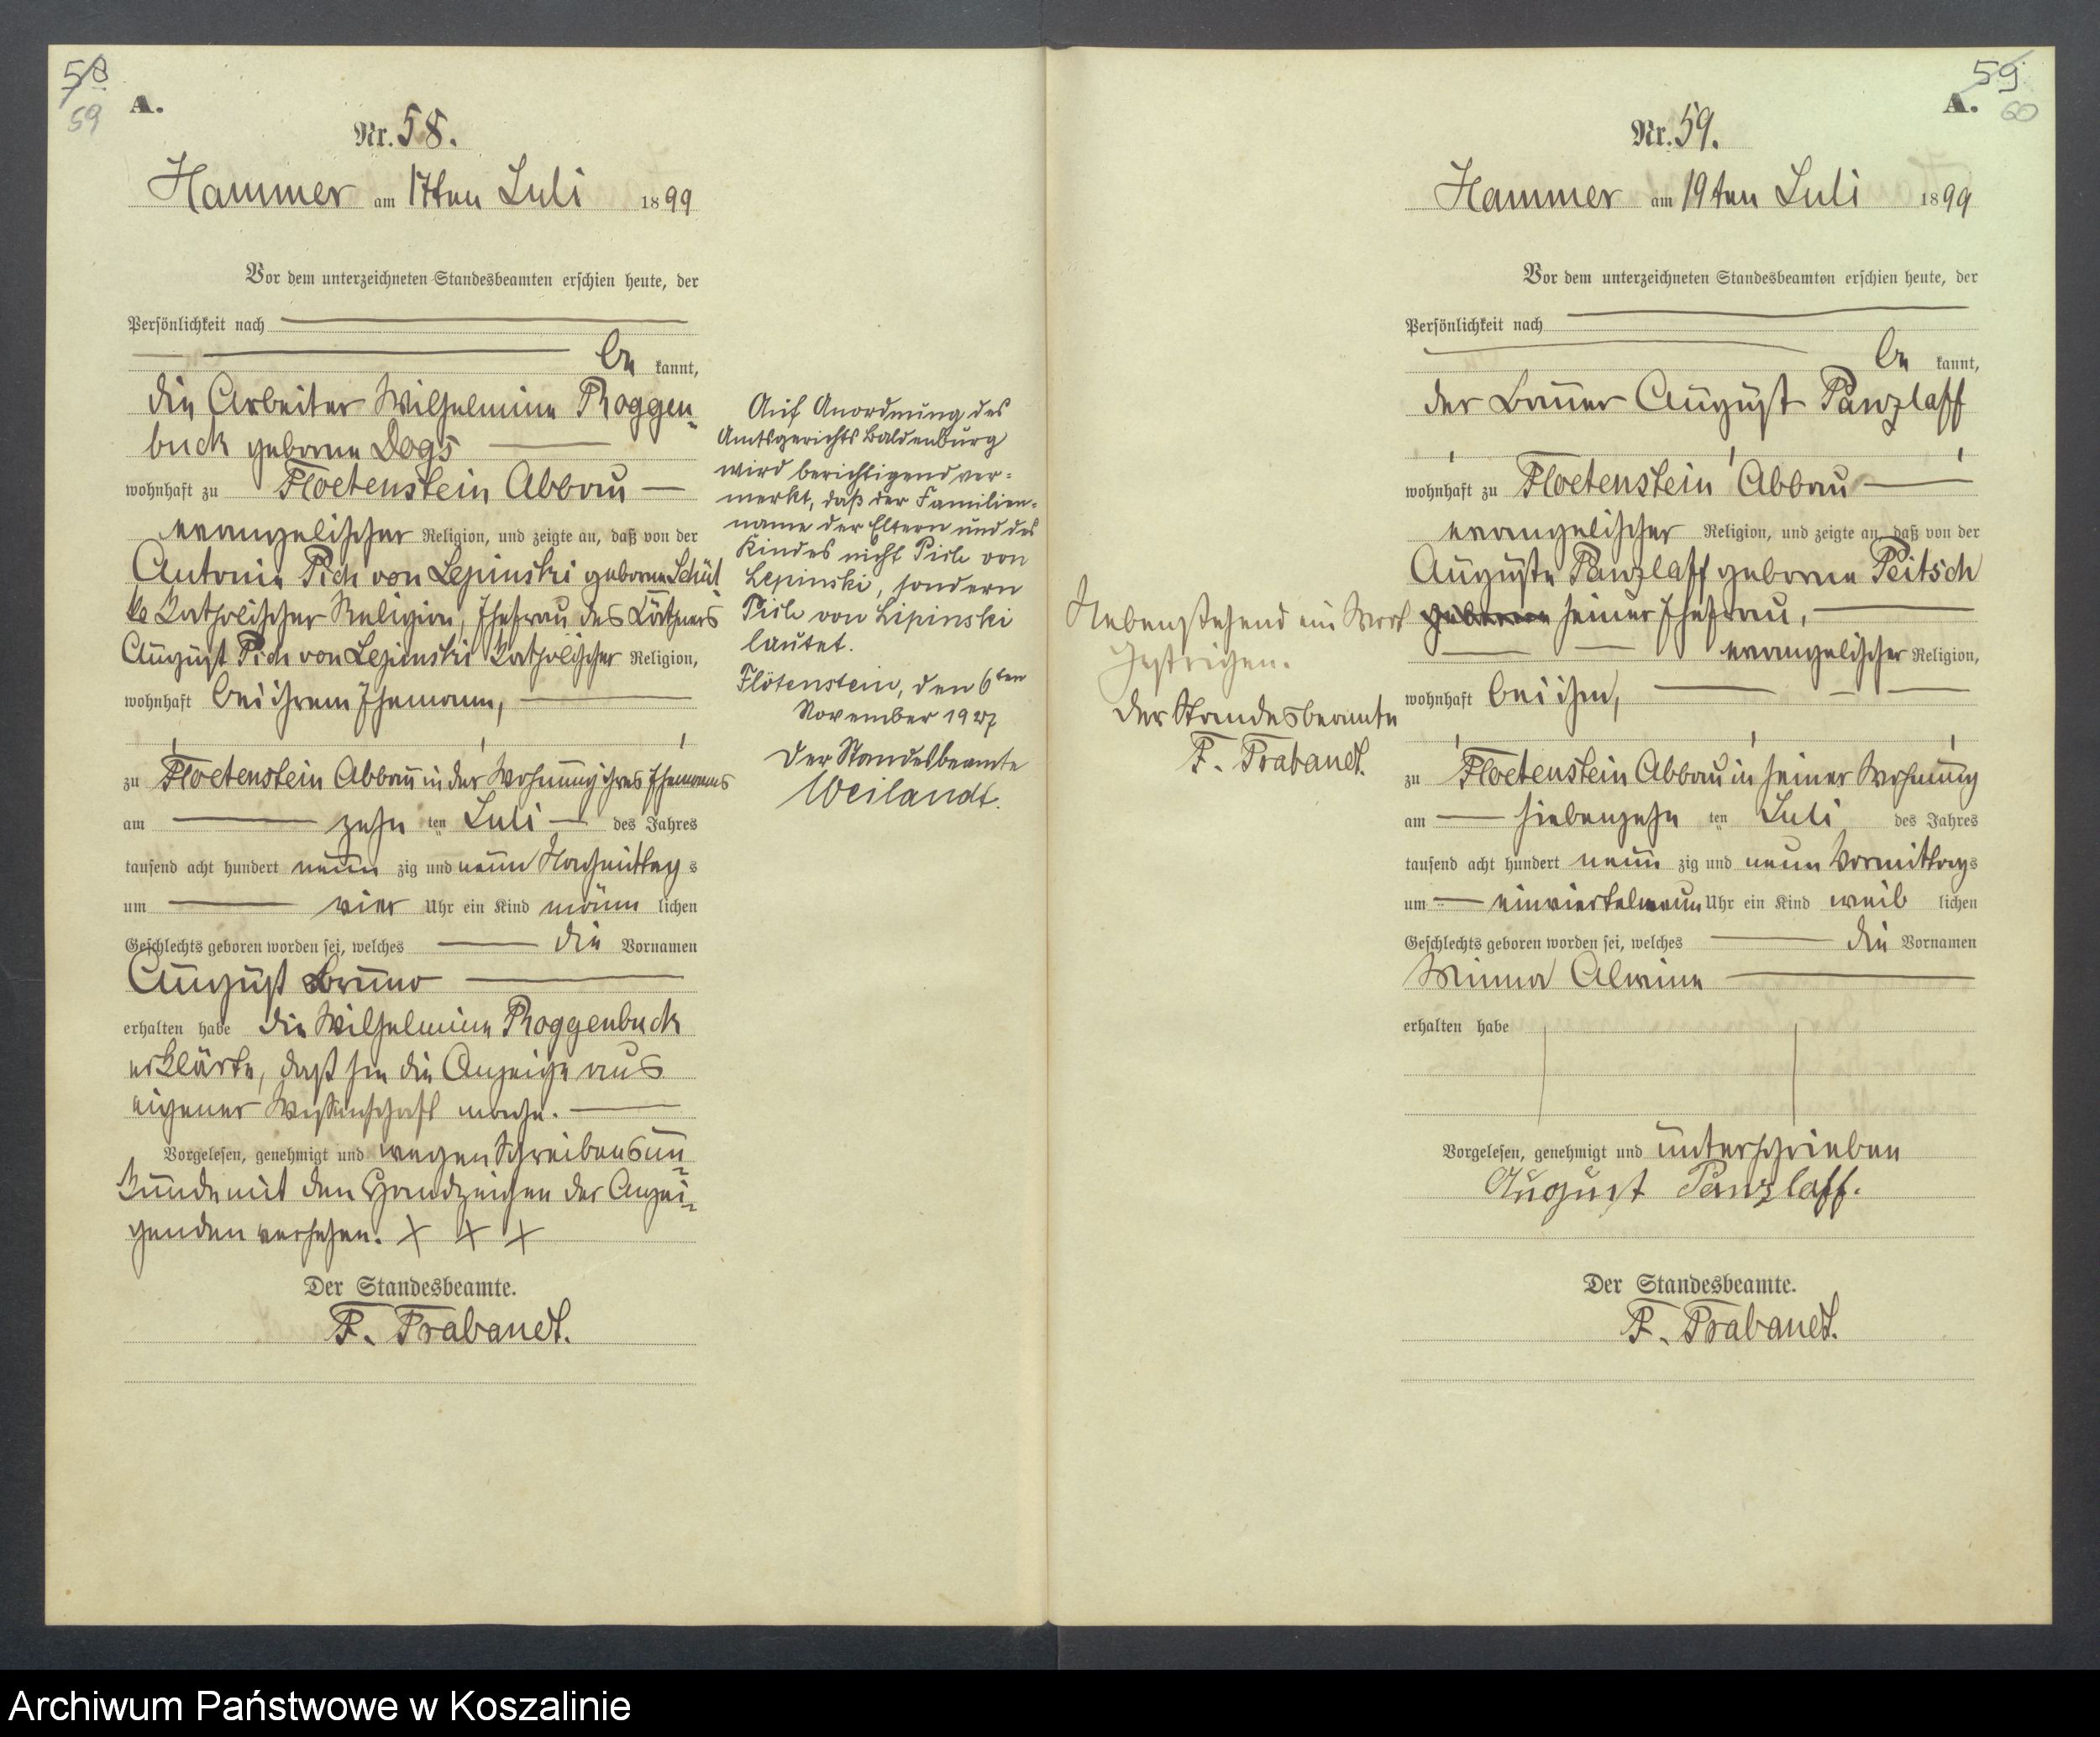 58
59
A.
Nr. 58.
Hammer am 17ten Juli 1899
Vor dem unterzeichneten Standesbeamten erschien heute, der
Persönlichkeit nach
be kannt,
die Arbeiter Wilhelmine Roggen-
buck geborne Dogs
wohnhaft zu Floetenstein Abbau
evangelischer Religion, und zeigte an, daß von der
Antonie Pich von Lepinski geborne Schüt
ke katholischer Religion, Ehefrau des Käthners
August Pich von Lepinski katholischer Religion,
wohnhaft bei ihrem Ehemann,
zu Floetenstein Abbau in der Wohnung ihres Ehemanns
am zehn ten Juli des Jahres
tausend acht hundert neun zig und neun Nachmittag s
um vier Uhr ein Kind männ lichen
Geschlechts geboren worden sei, welches die Vornamen
August Bruno
erhalten habe die Wilhelmine Roggenbuck
erklärte, daß sie die Anzeige aus
eigener Wissenschaft mache.
Vorgelesen, genehmigt und wegen Schreibensun-
kunde mit den Handzeichen der Anzei-
genden versehen. X X X
Der Standesbeamte.
F. Trabandt.
Auf Anordnung des
Amtsgerichts Baldenburg
wird berichtigend ver-
merkt, daß der Familien-
name der Eltern und des
Kindes nicht Pich von
Lepinski, sondern
Pich von Lipinski
lautet.
Flötenstein, den 6ten
November 1927
Der Standesbeamte
Weilandt.
59
60
A.
Nr. 59.
Hammer am 19ten Juli 1899
Vor dem unterzeichneten Standesbeamten erschien heute, der
Persönlichkeit nach
be kannt,
der Bauer August Panzlaff
wohnhaft zu Floetenstein Abbau
evangelischer Religion, und zeigte an, daß von der
Auguste Panzlaff geborne Peitsch
geborene seiner Ehefrau,
evangelischer Religion,
wohnhaft bei ihm,
zu Floetenstein Abbau in seiner Wohnung
am siebenzehn ten Juli des Jahres
tausend acht hundert neun zig und neun Vormittags
um einviertelneun Uhr ein Kind weib lichen
Geschlechts geboren worden sei, welches die Vornamen
Minna Alwine
erhalten habe
Vorgelesen, genehmigt und unterschrieben
August Panzlaff.
Der Standesbeamte.
F. Trabandt.
Nebenstehend ein Wort
gestrichen.
Der Standesbeamte
F. Trabandt.
Archiwum Państwowe w Koszalinie